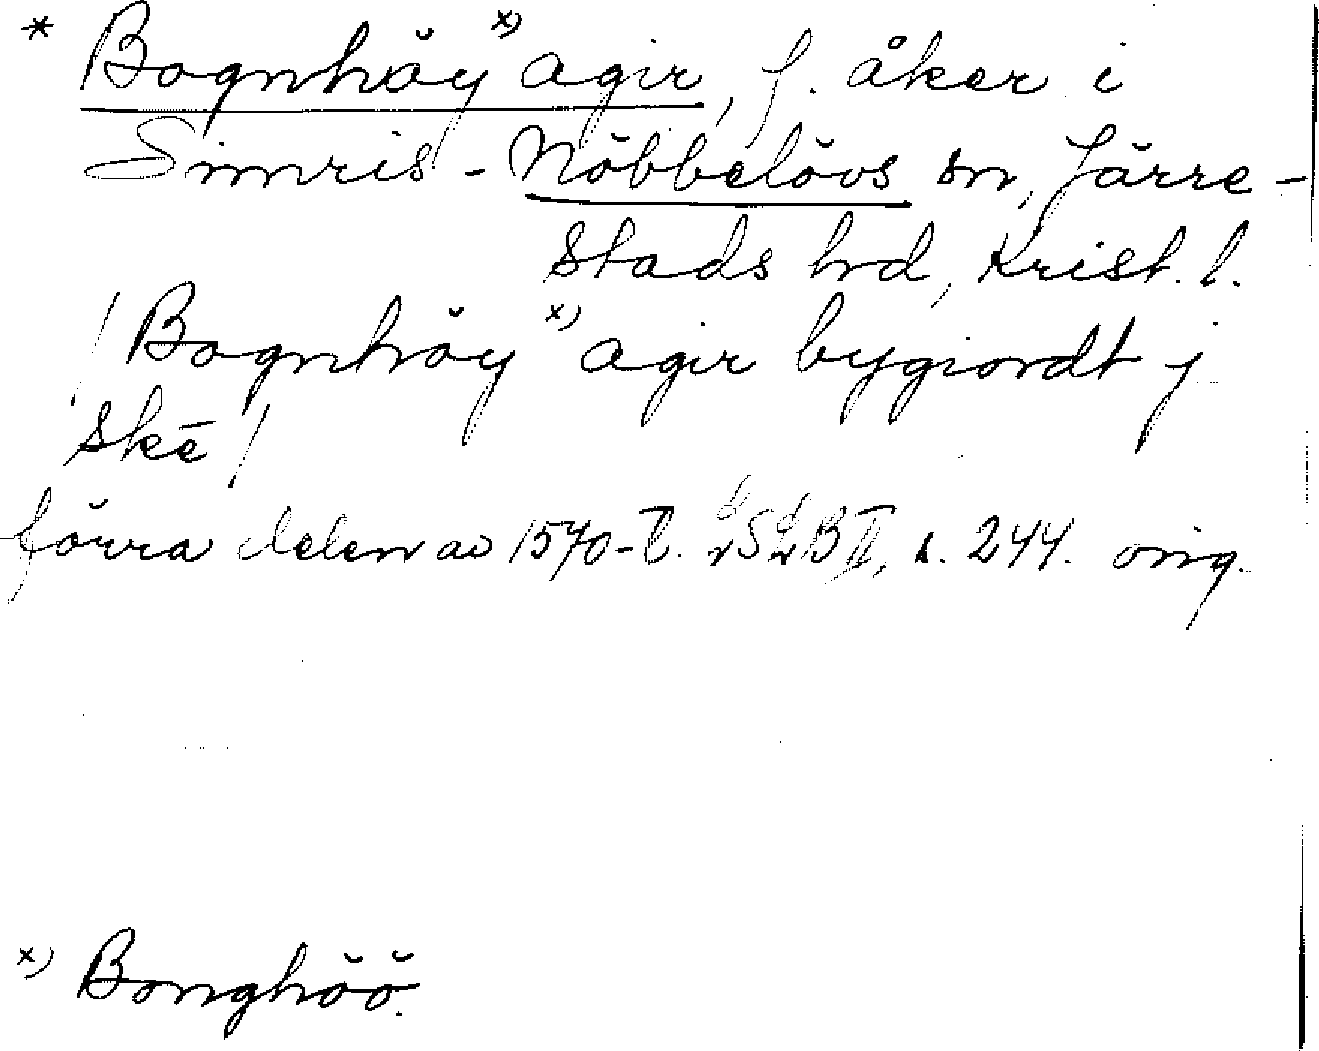 * Bognhöy x) agir, f. åker i
Simris-Nöbbelövs sn, Järre-
stads hd, Krist. l.
/ Bognhöy x) agir bygiordt j
skē /
förra delen av 1570-t. II, s. 244. orig.
x) Bonghöö.